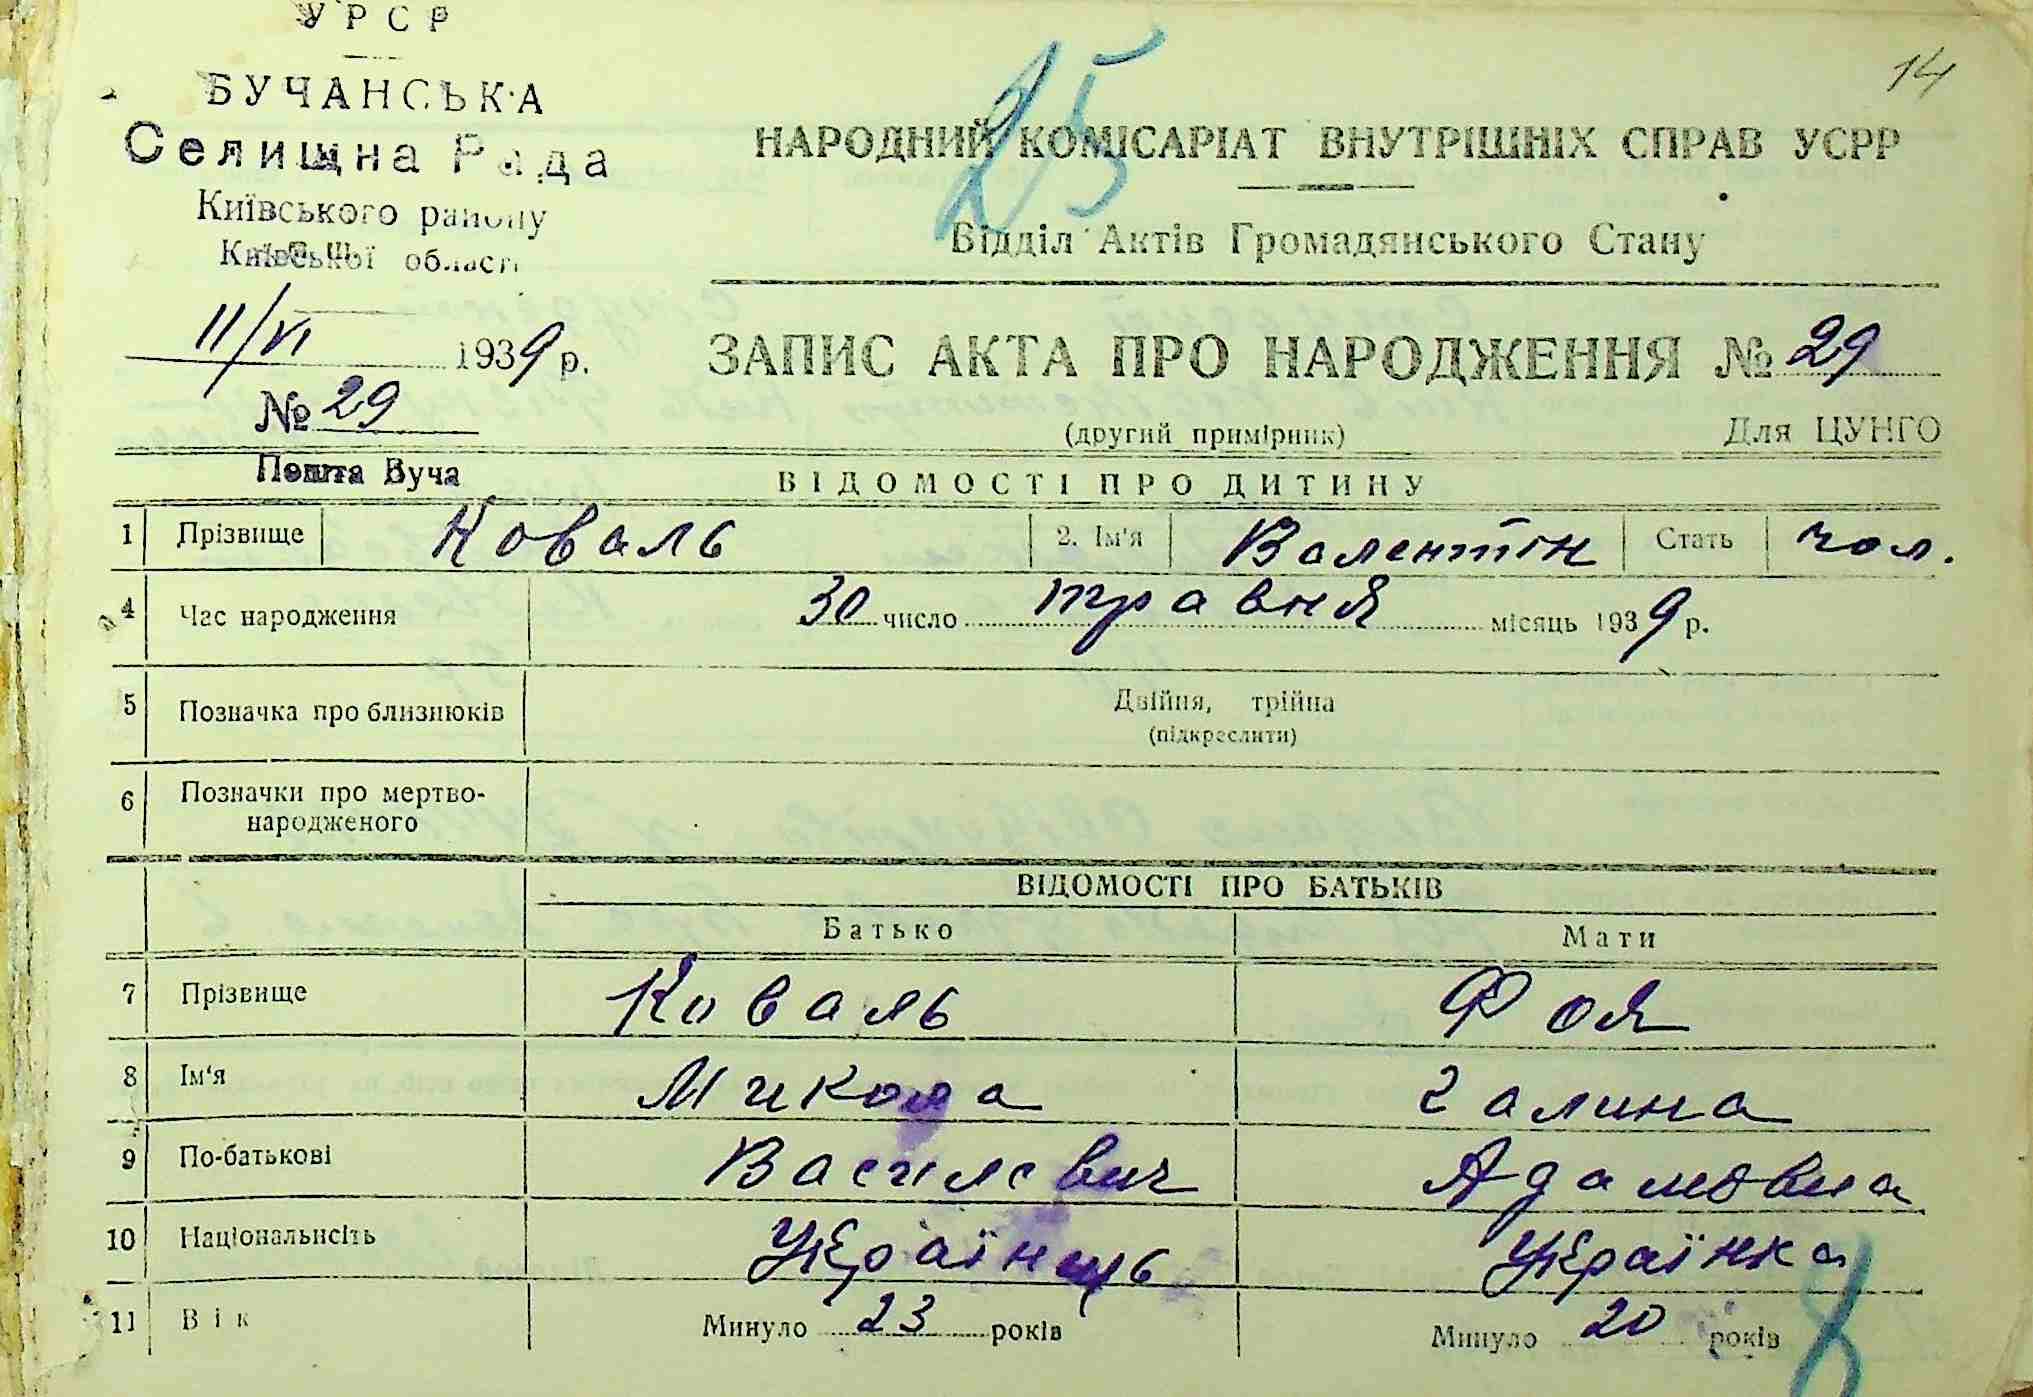 УРСР
БУЧАНСЬКА
Селищна Рада
Київського району
Київської області
11/VI 1939 р.
№ 29
Пошта Буча
14
25
НАРОДНИЙ КОМІСАРІАТ ВНУТРІШНІХ СПРАВ УСРР
Відділ Актів Громадянського Стану
ЗАПИС АКТА ПРО НАРОДЖЕННЯ № 29
(другий примірник) Для ЦУНГО
ВІДОМОСТІ ПРО ДИТИНУ
1 Прізвище Коваль 2. Ім'я Валентін Стать чол.
4 Час народження 30 число травня місяць 1939 р.
5 Позначка про близнюків Двійня, трійня
(підкреслити)
6 Позначки про мертво-
народженого
ВІДОМОСТІ ПРО БАТЬКІВ
Батько Мати
7 Прізвище Коваль Фоя
8 Ім'я Микола Галина
9 По-батькові Василєвич Адамовна
10 Національність Українець Українка
11 Вік Минуло 23 років Минуло 20 років